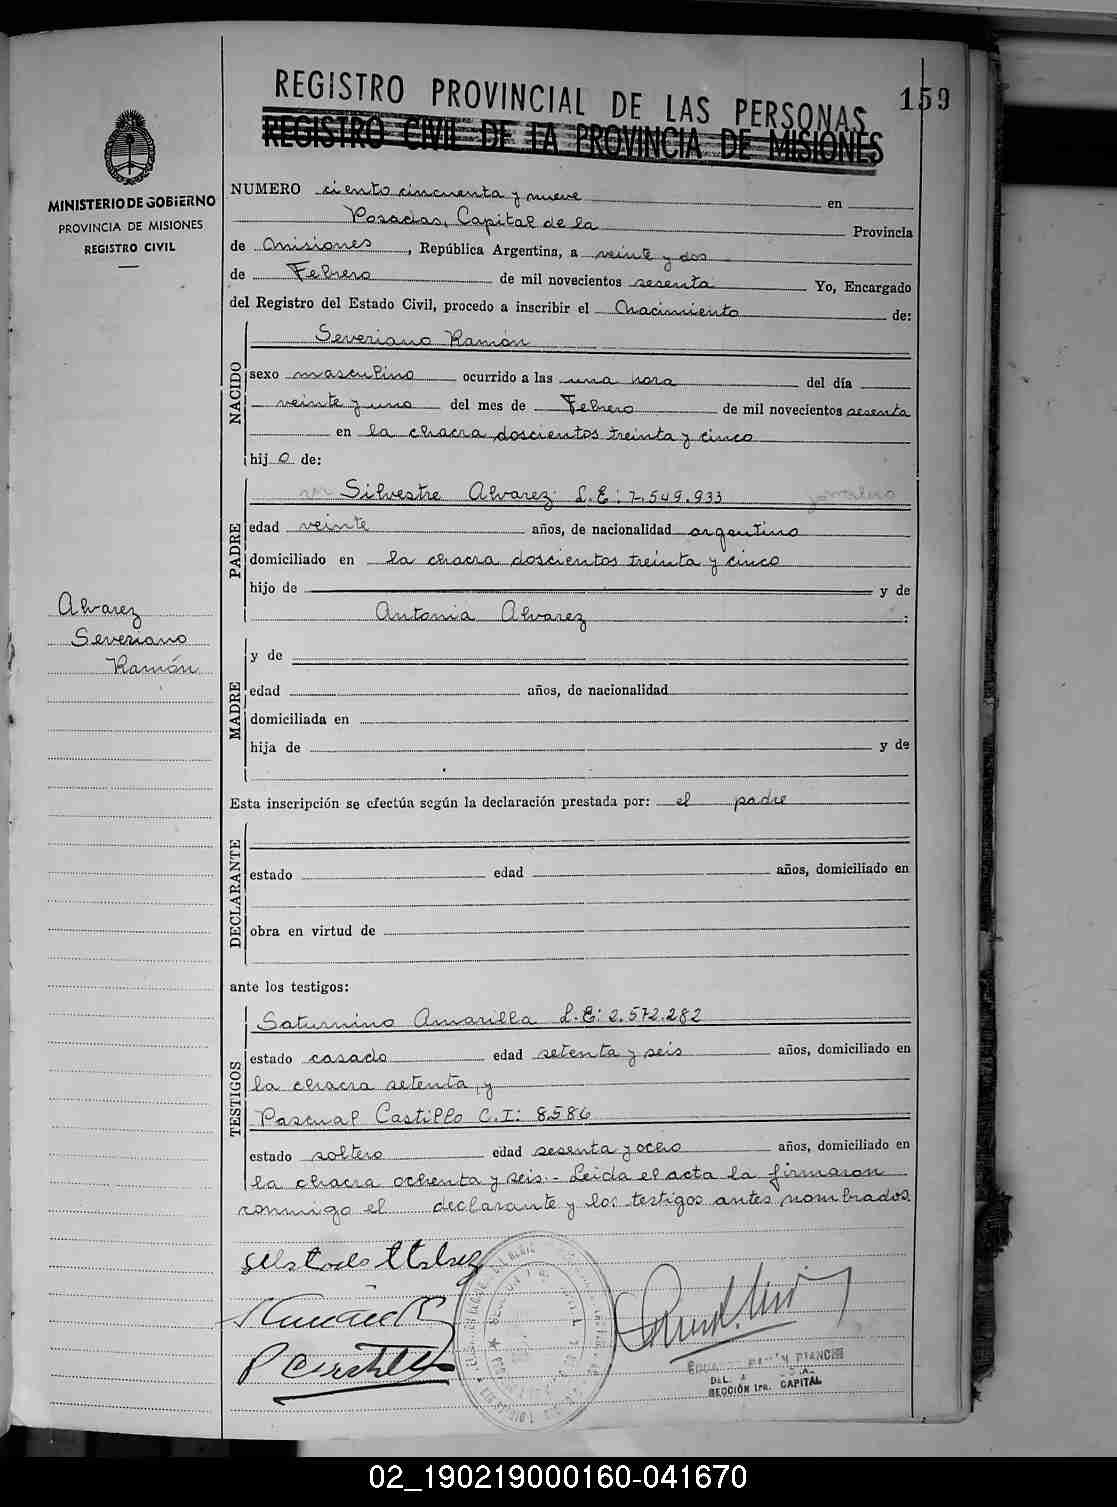 REGISTRO PROVINCIAL DE LAS PERSONAS
159
REGISTRO CIVIL DE LA PROVINCIA DE MISIONES
MINISTERIO DE GOBIERNO
PROVINCIA DE MISIONES
REGISTRO CIVIL
NUMERO ciento cincuenta y nueve en
Posadas, Capital de la Provincia
de Misiones, República Argentina, a veinte y dos
de Febrero de mil novecientos sesenta Yo, Encargado
del Registro del Estado Civil, procedo a inscribir el Nacimiento de:
NACIDO
Severiano Ramón
sexo masculino ocurrido a las una hora del día
veinte y uno del mes de Febrero de mil novecientos sesenta
en la chacra doscientos treinta y cinco
hij o de:
PADRE
Silvestre Alvarez L.E: 7.549.933 jornalero
edad veinte años, de nacionalidad argentino
domiciliado en la chacra doscientos treinta y cinco
hijo de y de
Antonia Alvarez
Alvarez
Severiano
Ramón
MADRE
y de
edad años, de nacionalidad
domiciliada en
hija de y de
Esta inscripción se efectúa según la declaración prestada por: el padre
DECLARANTE
estado edad años, domiciliado en
obra en virtud de
ante los testigos:
TESTIGOS
Saturnino Amarilla L.E: 2.572.282
estado casado edad setenta y seis años, domiciliado en
la chacra setenta, y
Pascual Castillo C.I: 8586
estado soltero edad sesenta y ocho años, domiciliado en
la chacra ochenta y seis.- Leida el acta la firmaron
conmigo el declarante y los testigos antes nombrados.
P Castillo
BIANCHI
SECCIÓN 1ra. CAPITAL
02_190219000160-041670